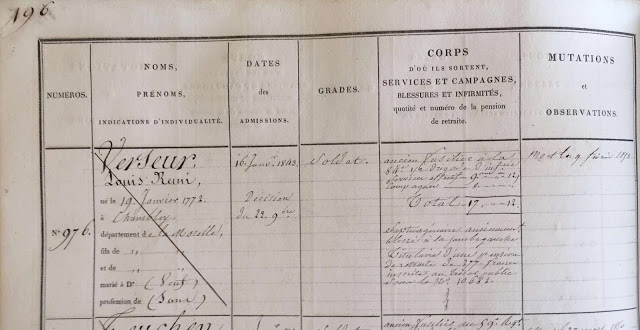 196
NUMÉROS.
NOMS,
PRÉNOMS,
INDICATIONS D'INDIVIDUALITÉ.
DATES
des
ADMISSIONS.
GRADES.
CORPS
D'OÙ ILS SORTENT,
SERVICES ET CAMPAGNES,
BLESSURES ET INFIRMITÉS,
quotité et numéro de la pension
de retraite.
MUTATIONS
et
OBSERVATIONS.
N° 976.
Verseur,
Louis Remi,
né le 19 Janvier 1773.
à
département de la Moselle,
fils de „ „
et de „ „
marié à De (Veuf)
profession de (Sans)
16 Janv. 1843.
Décision
du 22 9bre
Soldat.
ancien fusilier à la
84e 1/2 Brigade
Total 17 12
Septuagénaire anciennement
blessé à la jambe gauche
Titulaire d'une pension
de retraite de 277 francs
inscrite au trésor public
sous le No.
Mort le 9 février
ancien fusilier au 59e Régt.